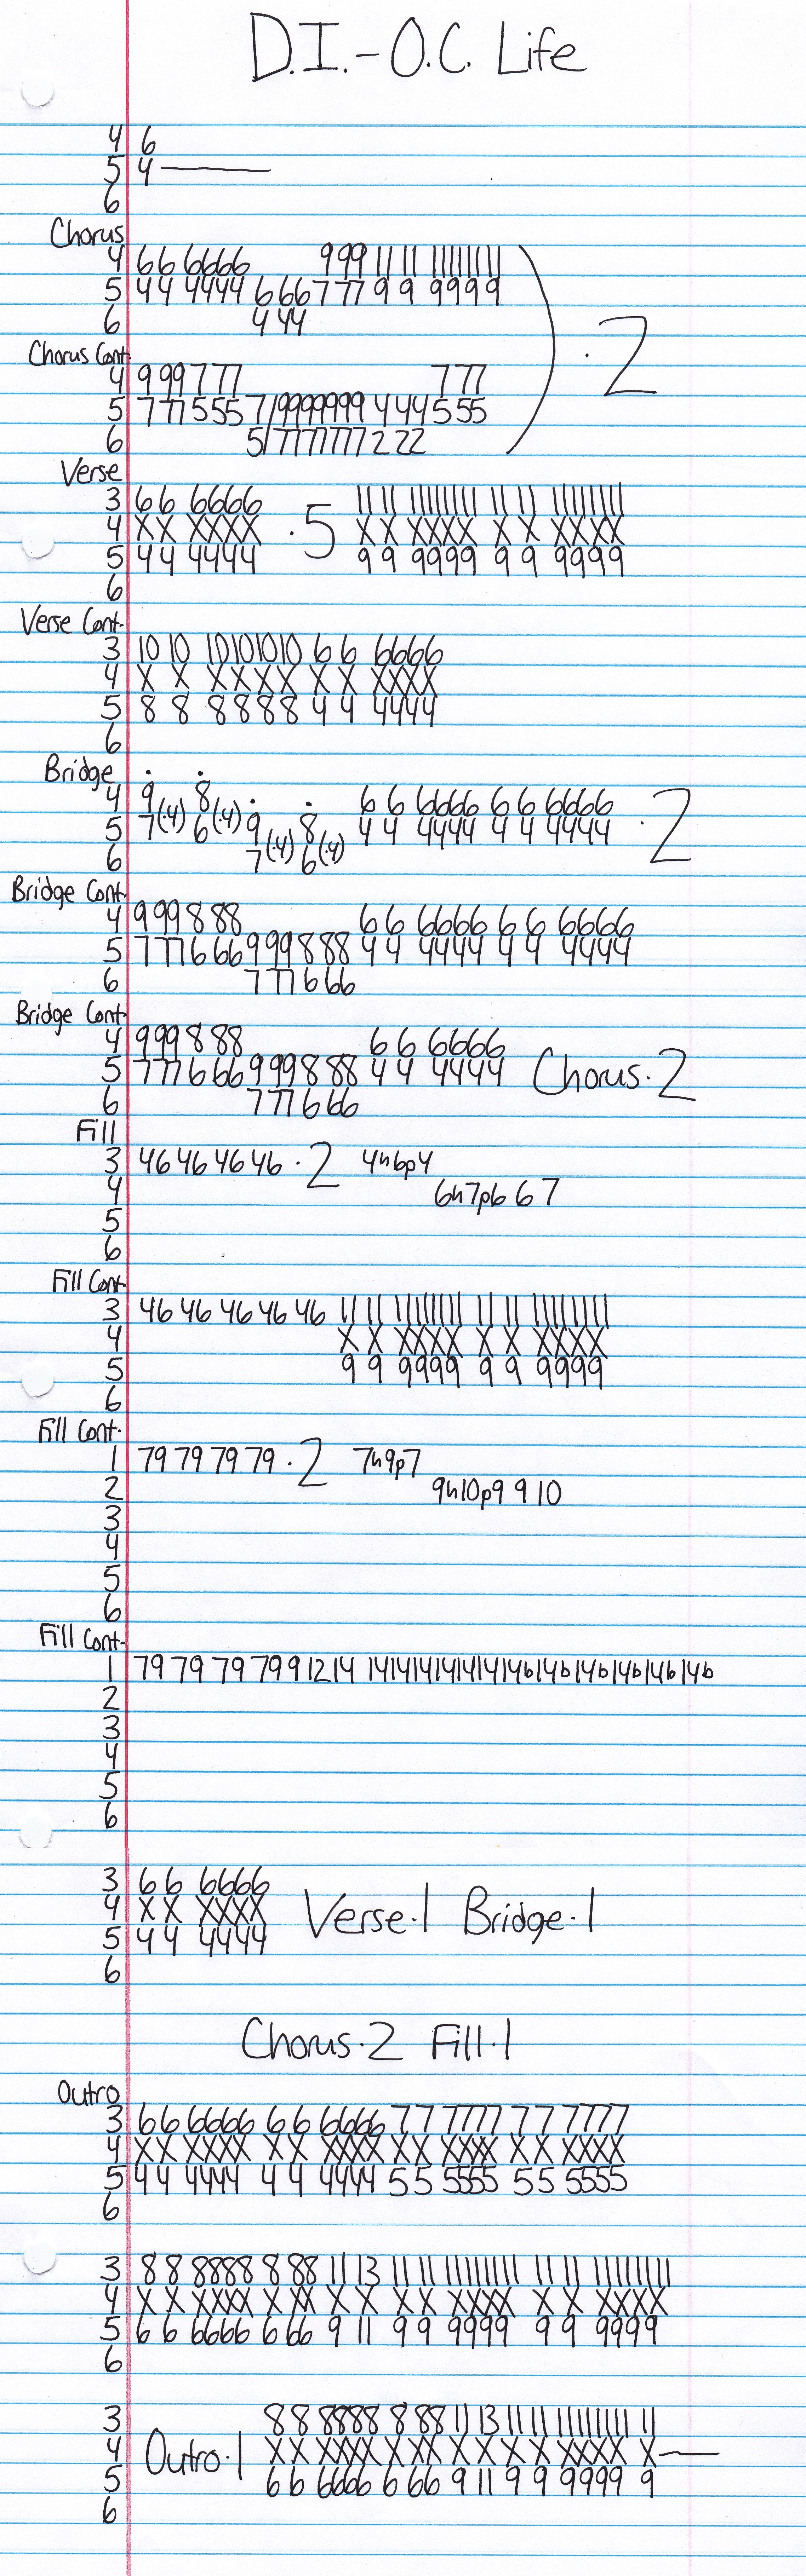 D.I.-O.C. Life
4 6
5 4 ———
6
Chorus
4 66 6666 999 11 11 11111111
5 44 4444 666 777 9 9 9999
6 444
·2
Chorus Cont.
4 999 777 777
5 777 555 7/9999999 444 555
6 5/7777777 222
Verse
3 66 6666 11 11 11111111 11 11 11111111
4 XX XXXX ·5 X X XXXX X X XXXX
5 44 4444 9 9 9999 9 9 9999
6
Verse Cont.
3 10 10 10101010 6 6 6666
4 X X XXXX X X XXXX
5 8 8 8888 4 4 4444
6
Bridge
4 9 8 6 6 6666 6 6 6666
5 7(·4) 6(·4) 9 8 4 4 4444 4 4 4444 ·2
6 7(·4) 6(·4)
Bridge Cont.
4 999 8 88 6 6 6666 6 6 6666
5 777 6 66 999 8 88 4 4 4444 4 4 4444
6 777 6 66
Bridge Cont.
4 999 8 88 6 6 6666
5 777 6 66 999 8 88 4 4 4444 Chorus·2
6 777 6 66
Fill
3 46 46 46 46 ·2 4h6p4
4 6h7p6 6 7
5
6
Fill Cont.
3 46 46 46 46 46 11 11 11111111 11 11 11111111
4 X X XXXX X X XXXX
5 9 9 9999 9 9 9999
6
Fill Cont.
1 79 79 79 79 ·2 7h9p7
2 9h10p9 9 10
3
4
5
6
Fill Cont.
1 79 79 79 799 12 14 14141414141414b14b14b14b14b14b
2
3
4
5
6
3 66 6666
4 XX XXXX Verse·1 Bridge·1
5 44 4444
6
Chorus·2 Fill·1
Outro
3 66 6666 6 6 6666 77 7777 77 7777
4 XX XXXX XX XXXX XX XXXX XX XXXX
5 44 4444 4 4 4444 55 5555 55 5555
6
3 8 8 8888 8 88 11 13 11 11 11111111 11 11 11111111
4 X X XXXX X XX X X X X XXXX X X XXXX
5 6 6 6666 6 66 9 11 9 9 9999 9 9 9999
6
3 8 8 8888 8 88 11 13 11 11 11111111 11
4 Outro·1 X X XXXX X XX X X X X XXXX X———
5 6 6 6666 6 66 9 11 9 9 9999 9
6